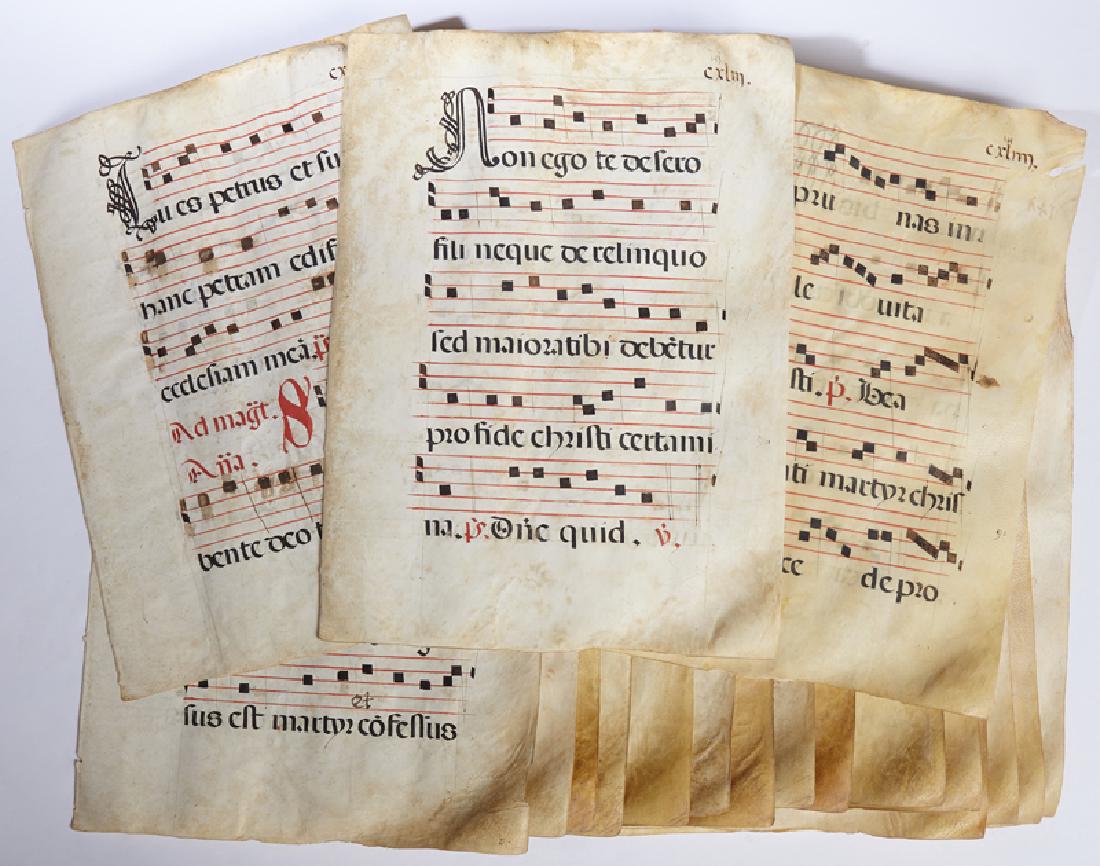 Tu es petrus et su
hanc petram edif
ecclesiam meã. p̃.
Ad mag̃t.
Añа.
S
bente deo
cxlııı.
Non ego te desero
fili neque derelinquo
sed maioratibi debẽtur
pro fide christi certami
na. p̃s. Dñe quid. v̓.
cxlııı̣.
pru nas in
le uita
sti. p̃. Bea
ti martyr chris
ce de pro
et
sus est martyr cõfessus